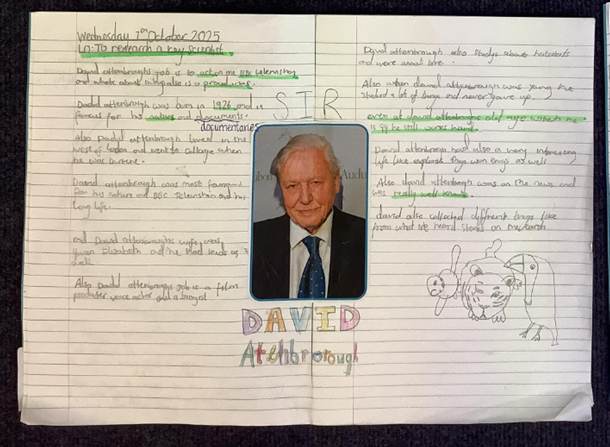 Wednesday 1st October 2025
LO: To research a key scientist
David attenboroughs job is to act on the BBC telernshy
and whote about wildlife is a prouducter.
David attenbrough was born in 1926 and is
famous for his nature and documents.
documentaries
Also David attenbrough lived in the
west of london and went to collage when
he was
David attenbrough was most
for his nature and BBC Televistin did his
long life.
and David attenboroughs wife was
Elizabeth and he had loads of
Also David attenbroughs job is a film
producter voice actor and a
SIR
DAVID
Atenbrorough
David attenbrough also studys about habatats
and were animal live.
Also when david attenbrough was young he
studied a lot of bugs and never gave up.
even at david attenboroughs old age which he
is 99 he still works hard.
David attenbrough had also a very intresting
life like explored things with bugs as well
Also david attenbrough was on the news and
was really well known.
david also collected different bugs like
from what we heard stones on